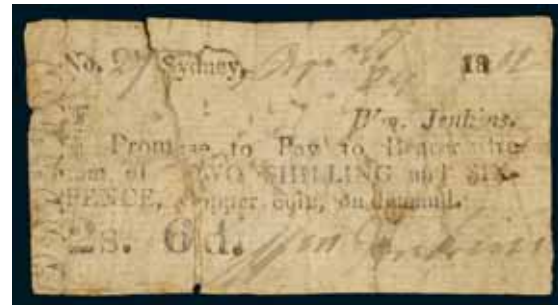 No. 27 Sydney, 18
Wm. Jenkins.
Promise to Pay to Bearer the
sum of TWO SHILLING and SIX-
PENCE, Copper Coin, on demand.
2s. 6d. Wm Jenkins